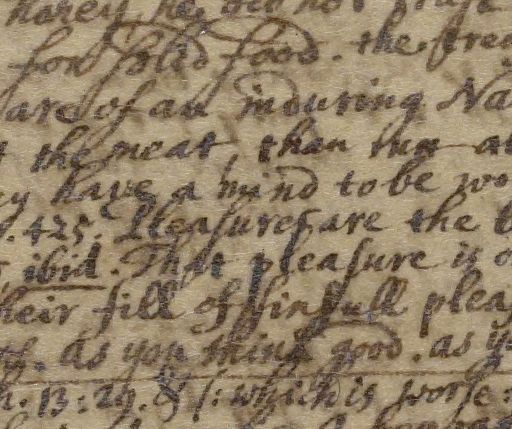 honey he did not
for solid food. the
are of an induring Na
the meat, than
have a mind to be wo
425. Pleasures are the b
ibid. That pleasure is o
heir fill of sinfull pleas
as you think good. as y
13:29. & /: which is worse: